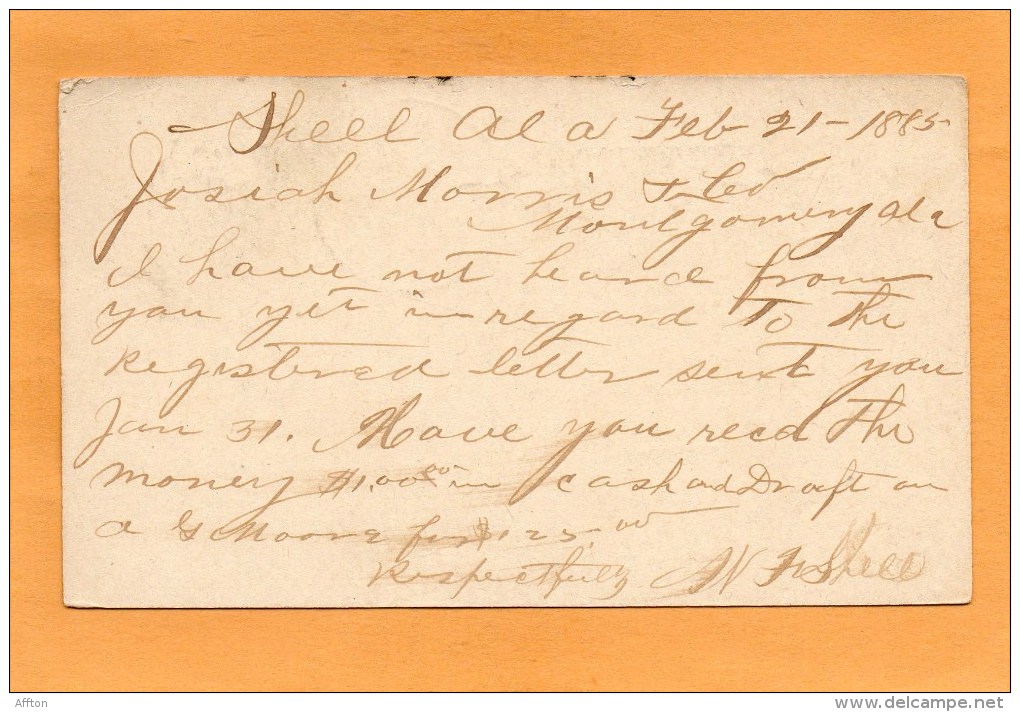 Shell Ala Feb 21 - 1885
Josiah Morris & Co
Montgomery Ala
I have not heard from
you yet in regard To The
Registered letter sent you
Jan 31. Have you recd The
money $100.00 in cash and Draft on
a G Moore for $125.00
Respectfully W F Shell
Affton
www.delcampe.net